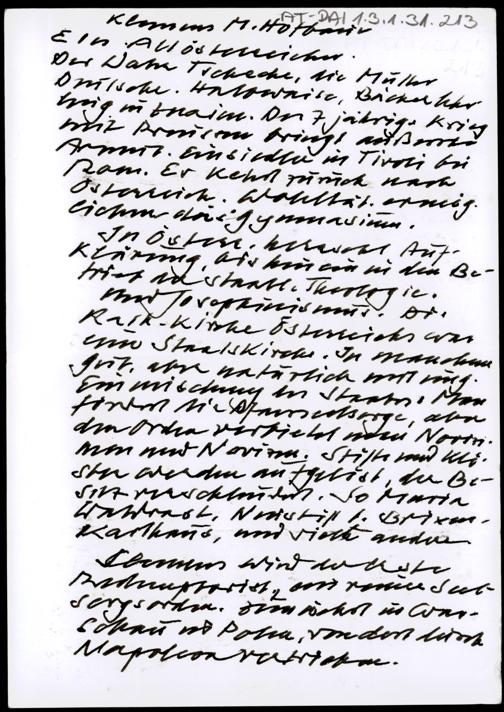 AT-DAI 1.3.1.31.213
Klemens M. Hofbauer
Ein Altösterreicher.
Der Vater Tscheche, die Mutter
Deutsche. Halbwaise, Bäckerlehr
ling in Znaim. Der 7 jährige Krieg
mit Preussen bringt äußerste
Armut. Einsiedler in Tivoli bei
Rom. Er kehrt zurück nach
Österreich. Wohltät. ermög-
lichen das Gymnasium.
In Österr. herrscht Auf-
klärung, bis hinein in den Be-
trieb der staatl. Theologie.
und Josephinismus. Die
Kath. Kirche Österreichs war
eine Staatskirche. In manchem
gut, aber natürlich mit
Einmischung des Staates: Man
fördert die Pfarrseelsorge, aber
den Orden verbietet man Novizen
men und Novizen. Stifte und Klö-
ster werden aufgelöst, der Be-
sitz verschleudert. So Maria
Waldrast, Neustift b. Brixen
Karthaus, und viele andere
Clemens wird der erste
Redemptorist, ein neuer Seel-
sorgsorden. Zunächst in War-
schau in Polen, von dort durch
Napoleon vertrieben.